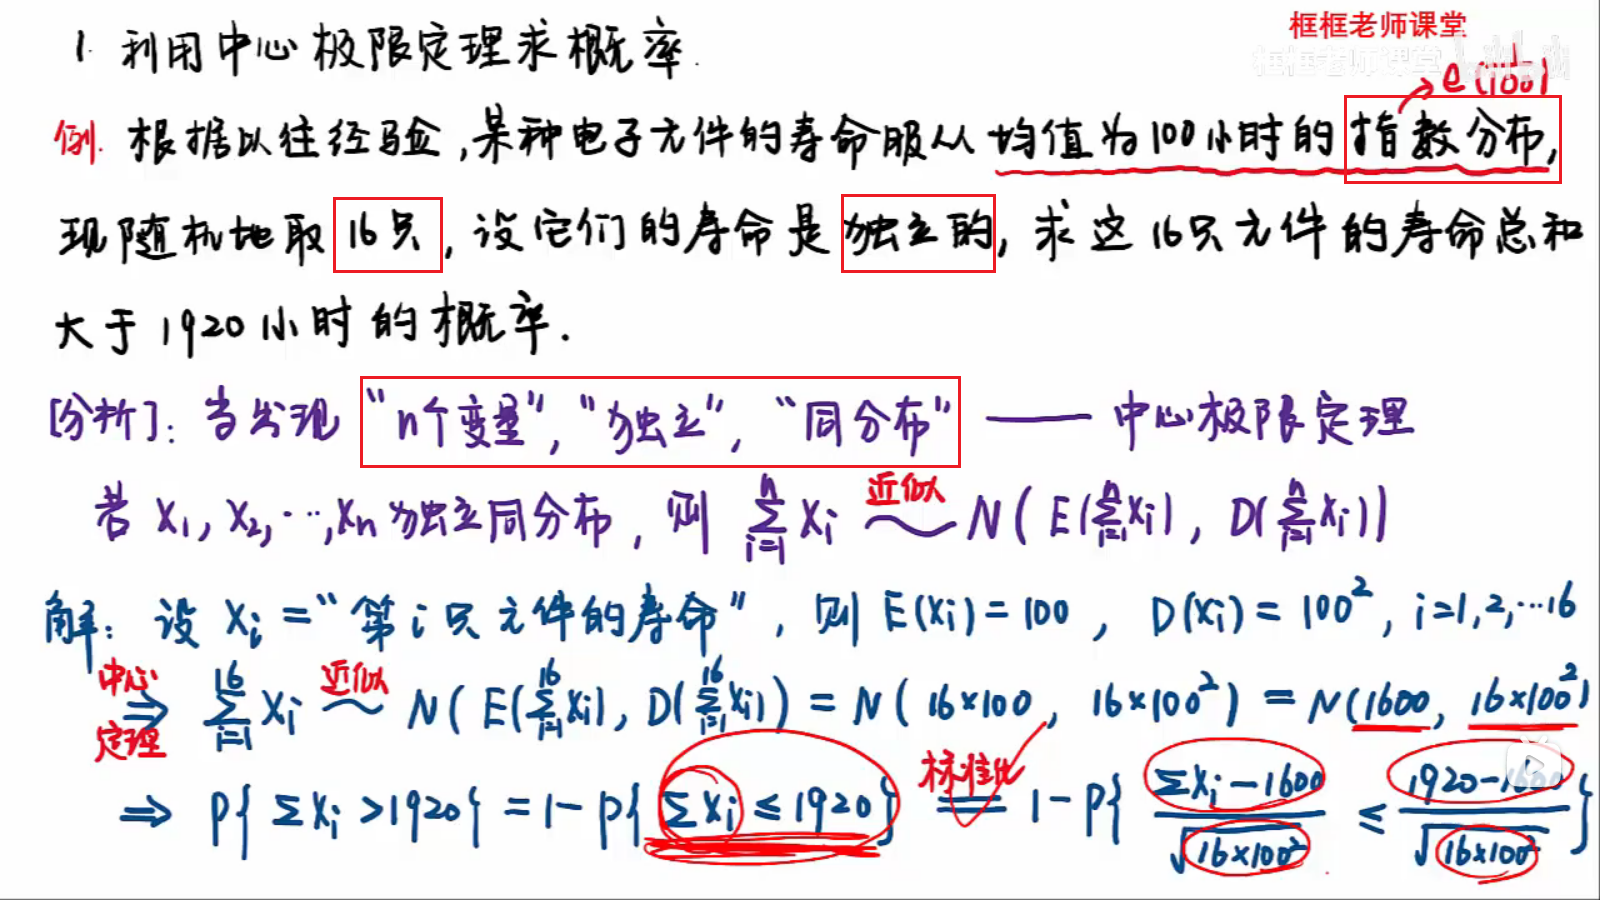 框框老师课堂
框框老师课堂
1. 利用中心极限定理求概率.
e(1/100)
例. 根据以往经验,某种电子元件的寿命服从均值为100小时的指数分布,
现随机地取16只,设它们的寿命是独立的,求这16只元件的寿命总和
大于1920小时的概率.
[分析]: 当发现“n个变量”,“独立”,“同分布” —— 中心极限定理
若 X₁, X₂, ⋯, Xn 独立同分布, 则 \sum_{i=1}^{n} Xi 近似 ~ N( E(\sum_{i=1}^{n} Xi), D(\sum_{i=1}^{n} Xi))
解: 设 Xi = “第i只元件的寿命”, 则 E(Xi) = 100, D(Xi) = 100², i=1,2,⋯16
中心定理 ⇒ \sum_{i=1}^{16} Xi 近似 ~ N( E(\sum_{i=1}^{16} Xi), D(\sum_{i=1}^{16} Xi)) = N( 16×100, 16×100² ) = N(1600, 16×100²)
⇒ P{ ΣXi > 1920 } = 1 - P{ ΣXi ≤ 1920 } 标准化 = 1 - P{ \frac{ΣXi - 1600}{\sqrt{16×100²}} ≤ \frac{1920-1600}{\sqrt{16×100²}} }